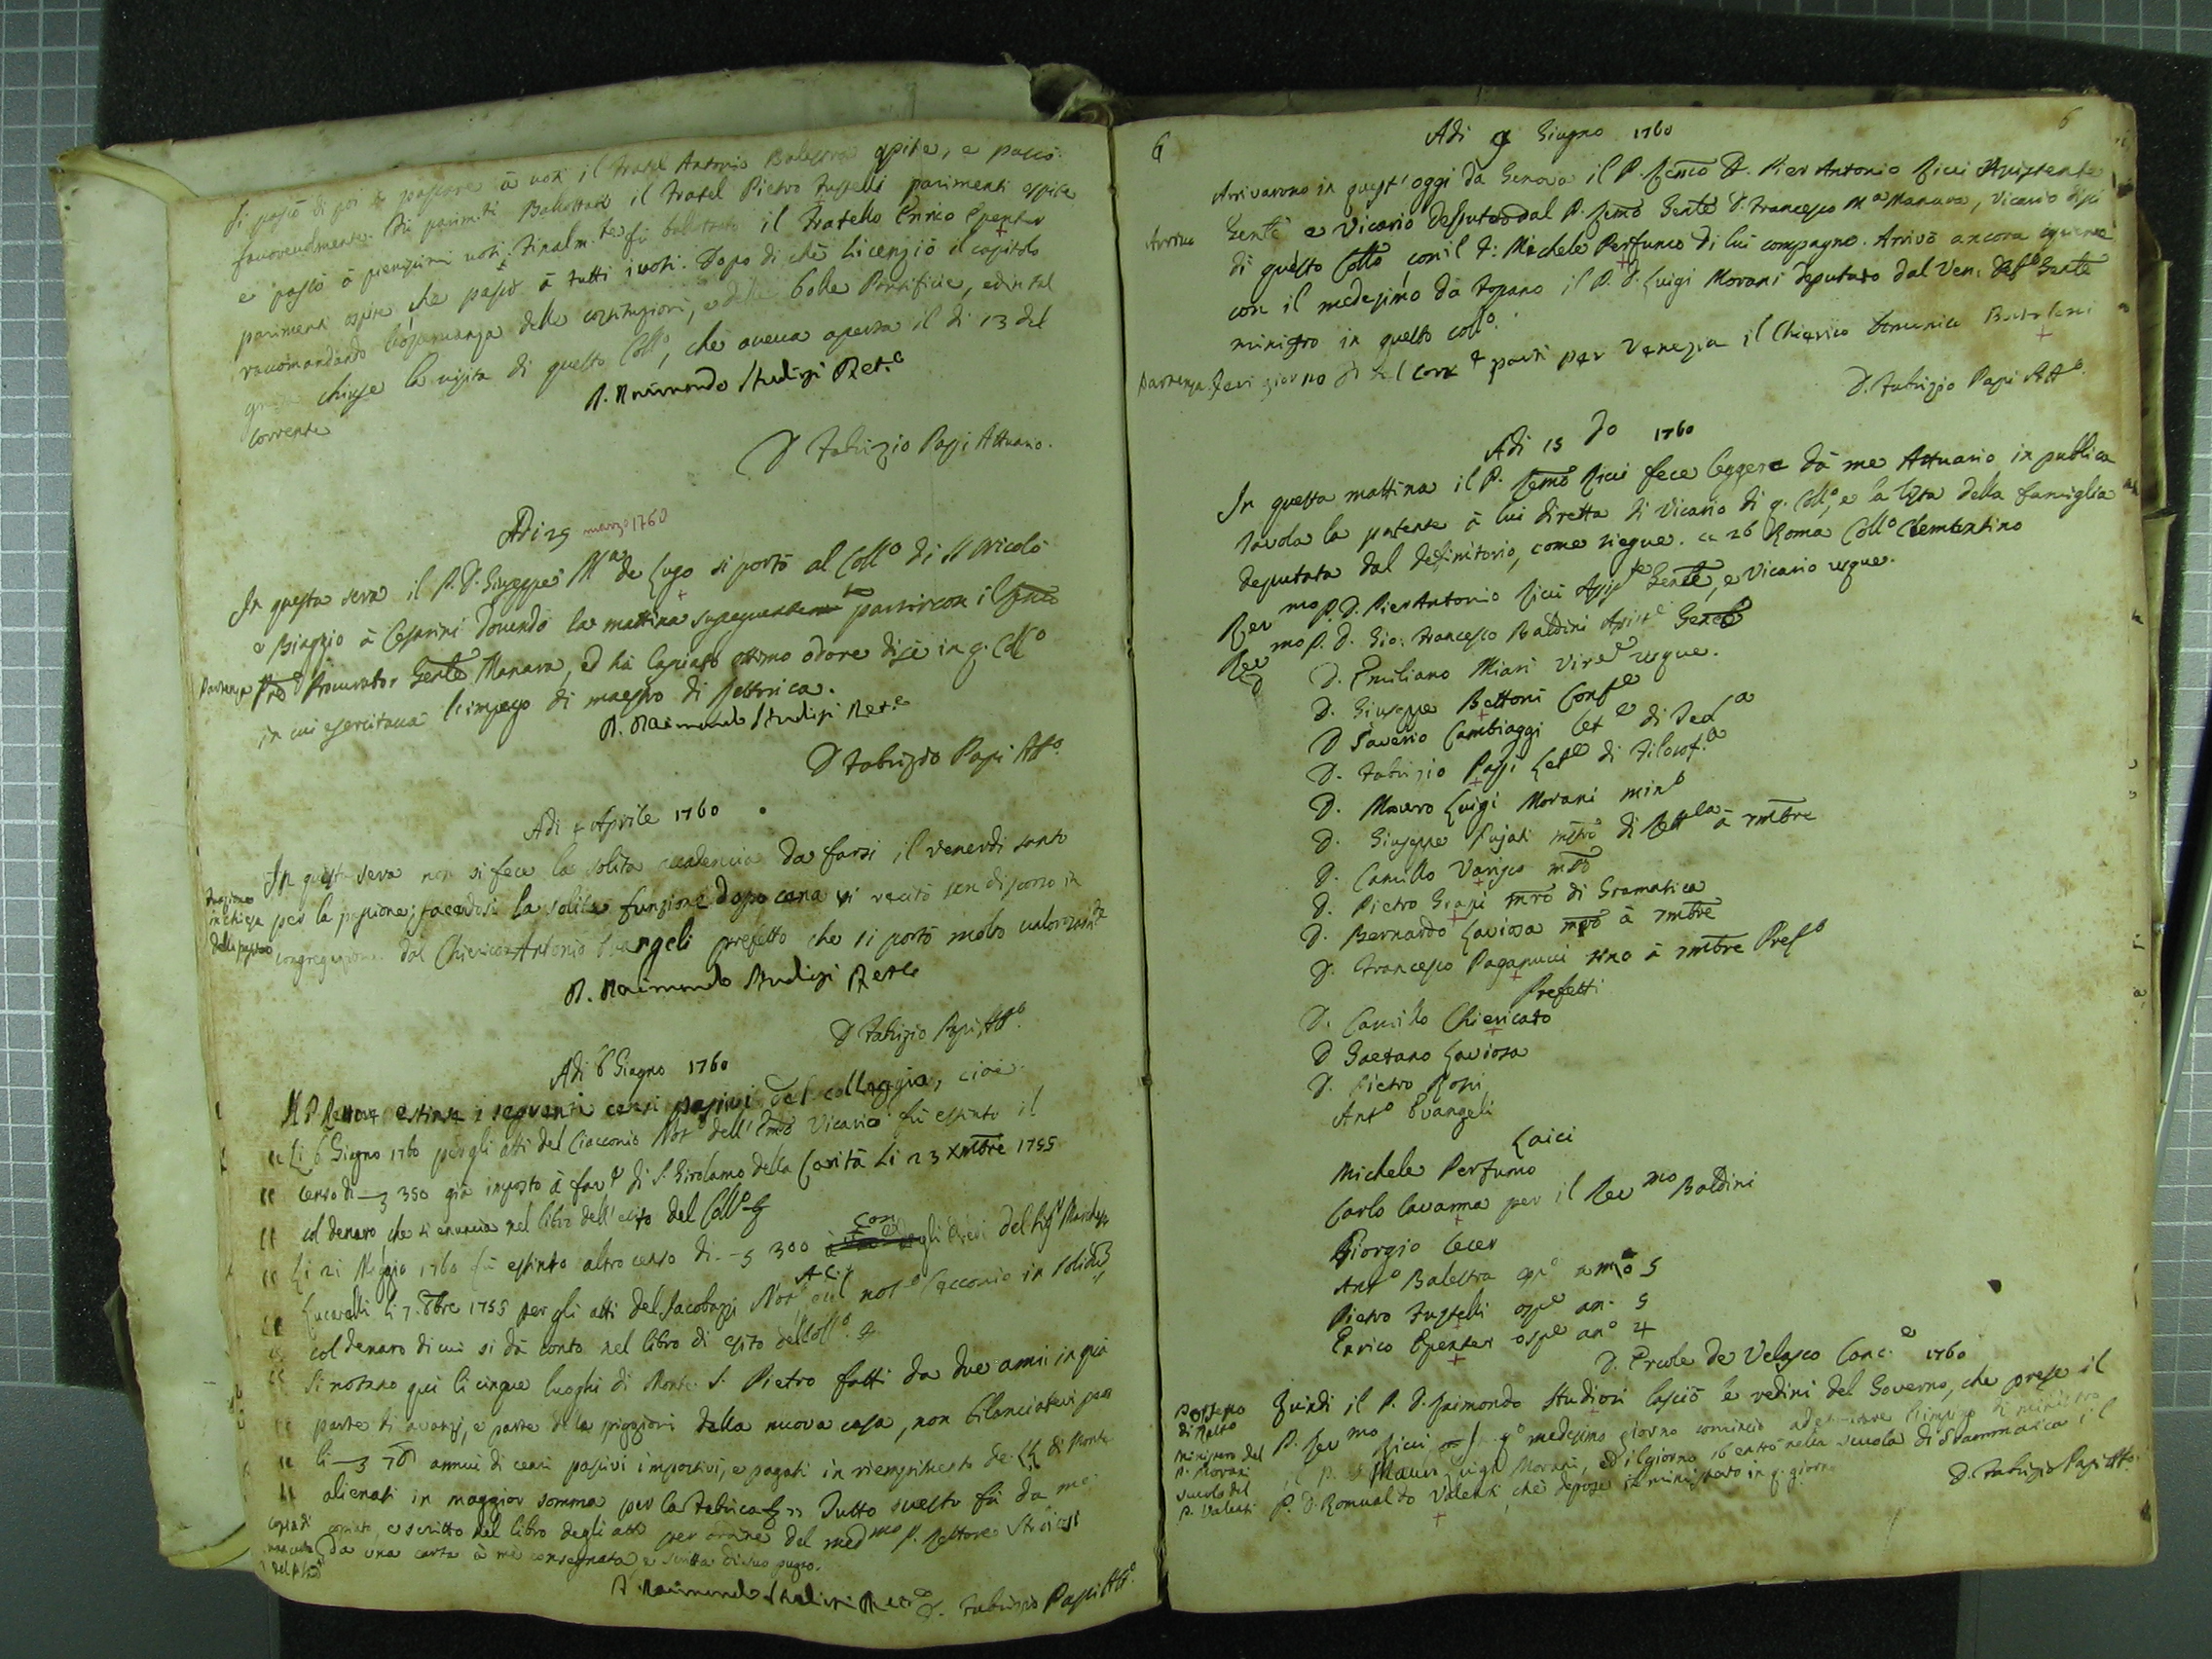 Si passò di poi a passare à voti il Fratel Antonio Balestra ospite, e passò
favorevolmente. Fù parim.ti Ballottato il Fratel Pietro Fustelli parimenti ospite
e passò à pienissimi voti. Finalm.te fù ballottato il Fratello Enrico Epenter
parimenti ospite che passò à tutti i voti. Dopo di chè licenziò il capitolo
raccomandando l'osservanza delle costituzioni, e delle bolle Pontificie, ed in tal
chiuse la visita di questo Coll.o, che aveva aperta il di 13 del
corrente
D. Raimondo Studiosi Rett.e
D Fabrizio Passi Attuario.
Adi 29 marzo 1760
In questa sera il P. D. Giuseppe M.a de Lugo si portò al Coll.o di S Nicolò
e Biaggio à Cesarini dovendo la mattina susseguente partir con il
Partenza Procurator Gen.le Manara, ed hà lasciato ottimo odore di sè in q. Coll.o
in cui esercitava l'impiego di maestro di Rettorica.
D. Raimondo Studiosi Rett.e
D Fabrizio Passi Att.o
Adi 4 Aprile 1760
In questa sera non si fece la solita accademia da farsi il venerdi santo
Funzione in chiesa della passione
per la passione; facendosi la solita funzione dopo cena vi recitò un discorso in
congregazione dal Chierico Antonio Evangeli prefetto che si portò molto valorosam.te
D. Raimondo Studiosi Rett.e
D Fabrizio Passi Att.o
Adi 6 Giugno 1760
Il P. Rettore estinse i seguenti censi passivi del colleggio, cioè.
" Li 6 Giugno 1760 per gli atti del Ciacconio Not.o dell'Emo Vicario fù estinto il
" censo di 350 già imposto à fav.e di S. Girolamo della Carità Li 23 Xmbre 1755
" col denaro che si enuncia nel libro dell'esito del Coll.o
" Li 21 Maggio 1760 fù estinto altro censo di 300 con gli Eredi del Sig.r Marchese
" Lucarelli li 7. 8bre 1755 per gli atti del Jacobazzi Not.o A.C. col not.o Cecconio in solidum
" col denaro di cui si dà conto nel libro di esito del Coll.o
" Si notano qui li cinque luoghi di Monte S. Pietro fatti da due anni in quà
" parte di avanzi, e parte delle piggioni della nuova casa, non bilanciatevi però
" li 78 annui di censi passivi impostivi, e pagati in riempimento de LL. di Monte
" alienati in maggior somma per la Fabrica " Tutto questo fù da me
Copia di una carta del P. Rett.e
copiato, e scritto nel libro degli atti per ordine del med.mo P. Rettore Studiosi
da una carta à me consegnata, e scritta di suo pugno.
D. Raimondo Studiosi Rett.e D. Fabrizio Passi Att.o
6
6
Adi 9 Giugno 1760
Arrivarono in quest'oggi da Genova il P. Remo D. Pier Antonio Ricci Assistente
Arrivo
Gen.le e Vicario deputato dal P. Remo Gen.le D. Francesco M.a Manara, Vicario
di questo Coll.o con il F: Michele Perfumo di lui compagno. Arrivò ancora
con il medesimo da Fossano il P. D. Luigi Morani deputato dal Ven. Def.o Gen.le
ministro in questo coll.o.
Partenza Jeri giorno del corr.e partì per Venezia il Chierico Domenico Bartoloni
D. Fabrizio Passi Att.o
Adi 15 do 1760
In questa mattina il P. Remo Ricci fece leggere dà me Attuario in publica
tavola la patente à lui diretta di Vicario di q. Coll.o, e la lista della famiglia
deputata dal definitorio, come siegue. a 26 Roma Coll.o Clementino
Rev.mo P. D. Pier Antonio Ricci Assist.te Gen.le, e Vicario usque.
Rev.mo P. D. Gio: Francesco Baldini Assist.e Gen.le
D. Emiliano Miari Vice usque.
D. Giuseppe Bettoni Conf.e
D Saverio Cambiaggi Let.e di Teol.a
D. Fabrizio Passi Let.e di Filosof.a
D. Mauro Luigi Morani min.o
D. Giuseppe Pujati mro di Rett.ca à 7mbre
D. Camillo Varisco mro
D. Pietro Grassi mro di Gramatica
D. Bernardo Laviosa mro à 7mbre
D. Francesco Paganucci sino à 7mbre Pref.o
Prefetti
D. Camillo Chiericato
D Gaetano Laviosa
D. Pietro Rossi
Ant.o Evangeli
Laici
Michele Perfumo
Carlo Cavanna per il Rev.mo Baldini
Giorgio Cecer
Ant.o Balestra osp.e anno 5
Pietro Fustelli osp.e an. 5
Enrico Epenter osp.e an.o 4
D. Ercole de Velasco Canc.e 1760
Possesso di Retto
Quindi il P. D. Raimondo Studiosi lasciò le redini del Governo, che prese il
Ministro del P. Morani
P. Rev.mo Ricci In q.o medesimo giorno cominciò ad esercitare l'impiego di ministro
il P. D. Mauro Luigi Morani, ed il giorno 16 entrò nella scuola di Grammatica il
Scuola del P. Valenti
P. D. Romualdo Valenti, che depose il ministrato in q. giorno
D. Fabrizio Passi Att.o